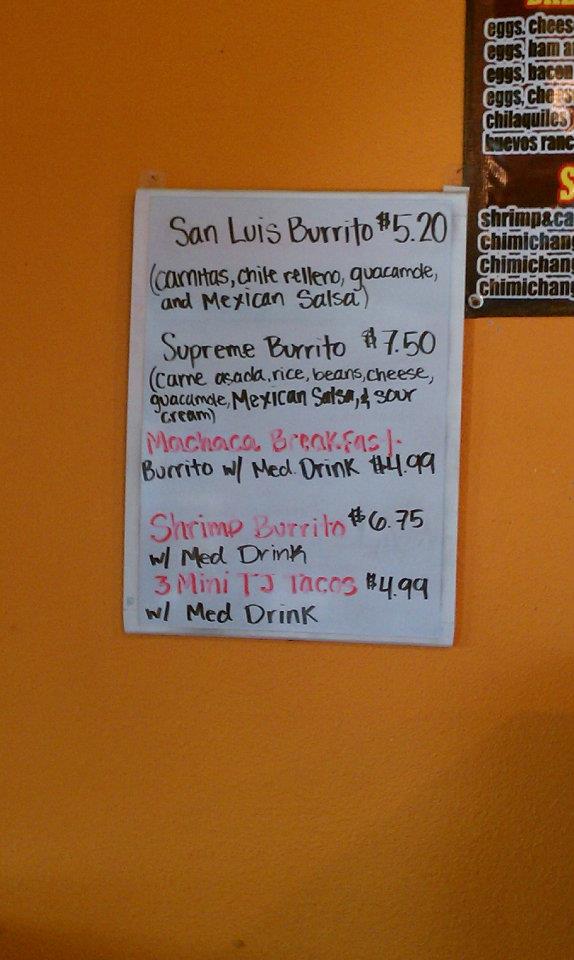 San Luis Burrito $5.20
(carnitas, chile relleno, guacamole,
and Mexican Salsa)
Supreme Burrito $7.50
(Carne asada, rice, beans, cheese,
guacamole, Mexican Salsa, & sour
cream)
Machaca Breakfast
Burrito w/ Med. Drink $4.99
Shrimp Burrito $6.75
w/ Med Drink
3 Mini TJ Tacos $4.99
w/ Med Drink
eggs, chees
eggs, ham a
eggs, bacon
eggs, chee
chilaquiles
huevos ranc
S
shrimp&ca
chimichang
chimichang
chimichang